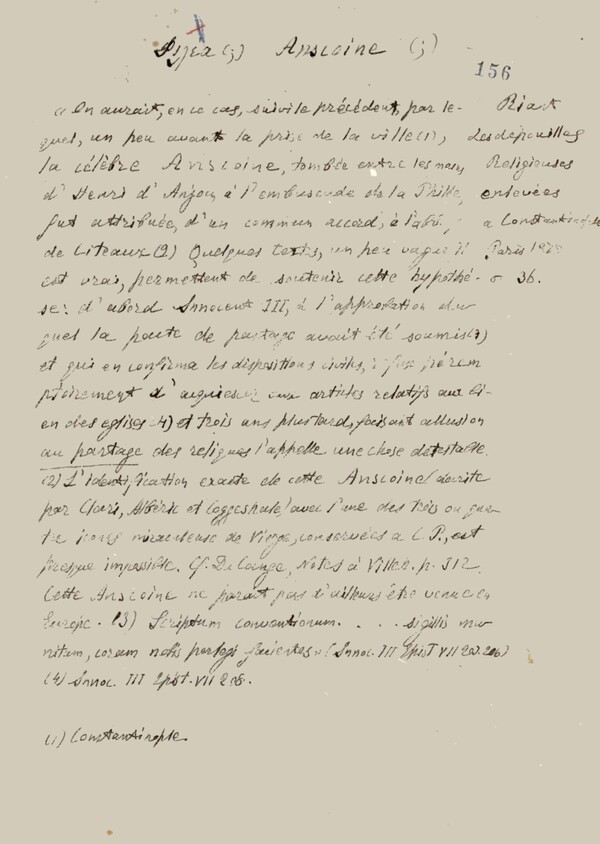 Ansc​oine (;)
156
« On aurait, en ce cas, suivi le précédent, par le-
quel, un peu avant la prise de la ville (1),
la célèbre Anscoine, tombée entre les mains
d'Henri d'Anjou, à l'embuscade de la Phille,
fut attribuée, d'un commun accord, à l'abbé
de Citeaux (2) Quelques textes, un peu vagues il
est vrai, permettent de soutenir cette hypothé-
se: d'abord Innocent III, à l'approbation du
quel la pacte de partage avait été soumis (3)
et qui en confirma les dispositions civiles,
d'acquiescer aux articles relatifs aux bi-
en des eglises (4) et trois ans plus tard, faisant allusion
au partage des reliques l'appelle une chose détestable.
(2) L'identification exacte de cette Anscoine (décrite
par Clari, Albéric et Coggeshale) avec l'une des trois ou qua-
tre icones miraculeuse de Vierge, conservées a C.P., est
presque impossible. Cf. Du Cange, Notes à Villeh. p. 312.
Cette Anscoine ne parait pas d'ailleurs être venue en
Europe. (3) Scriptum conventionum. . . . sigillis mu-
nitum, coram nobis perlegi facientes » (Innoc. III Epist VII 202. 206)
(4) Innoc. III Epist. VII 208.
(1) Constantinople
Riant
Les dépouilles
Religieuses
enlevées
a Constantinople
Paris
σ 36.